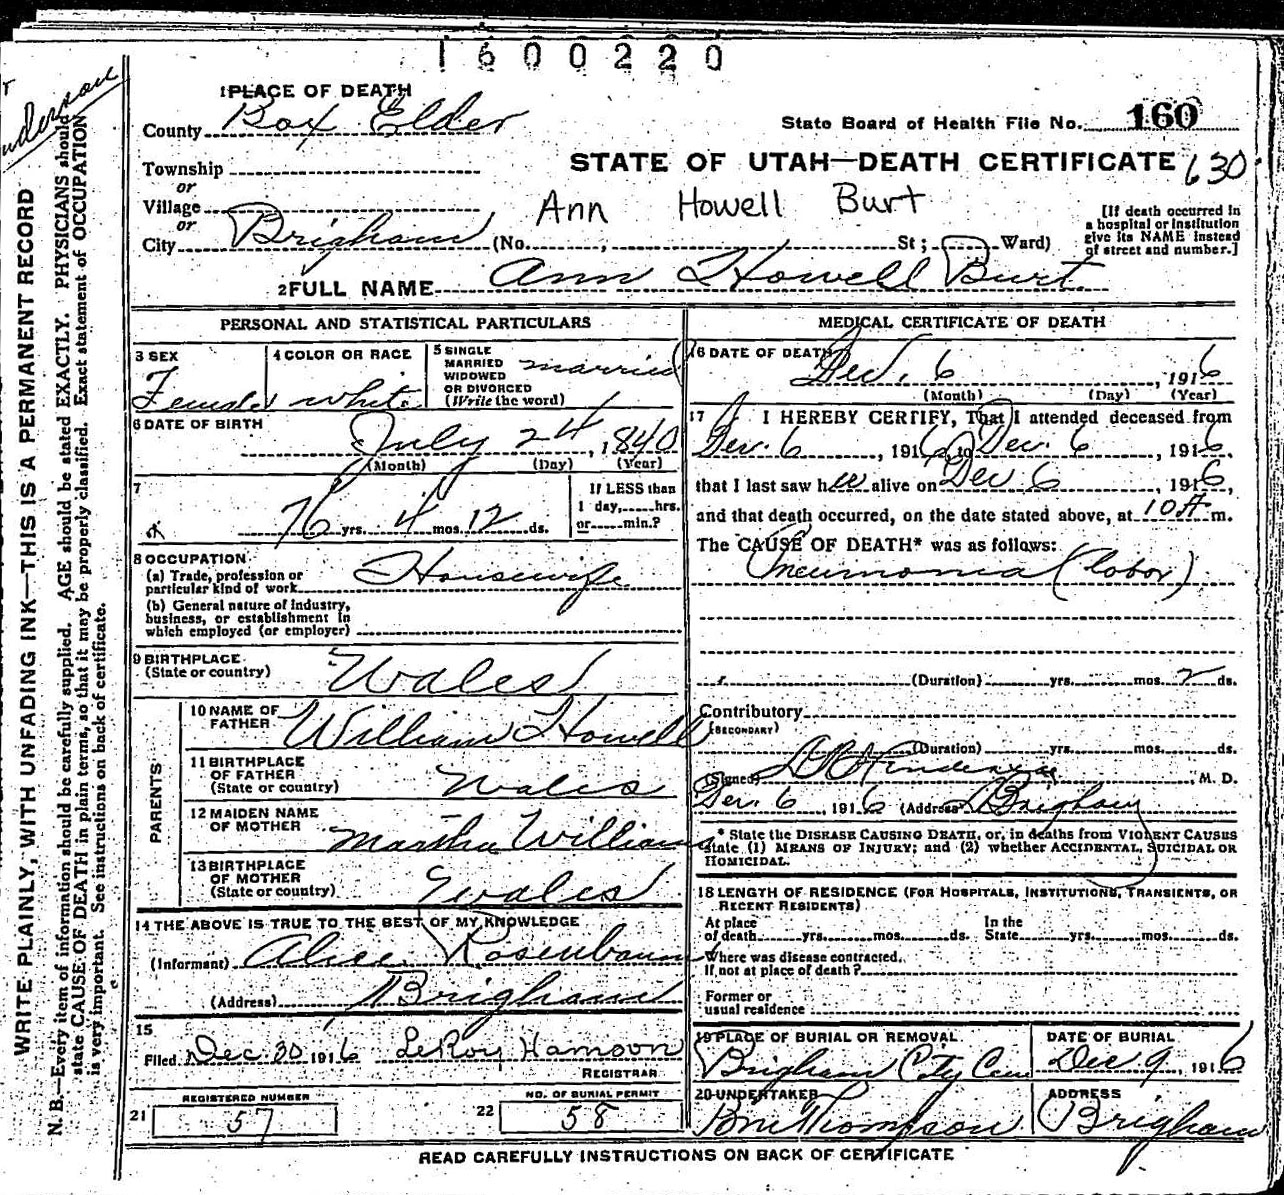 1600220
1 PLACE OF DEATH
County Box Elder
State Board of Health File No. 160
Township
or
STATE OF UTAH—DEATH CERTIFICATE 630
Village
or
Ann Howell Burt
City Brigham (No. , St; Ward)
[If death occurred in
a hospital or institution
give its NAME instead
of street and number.]
2 FULL NAME Ann Howell Burt
PERSONAL AND STATISTICAL PARTICULARS
3 SEX
Female
4 COLOR OR RACE
white
5 SINGLE
MARRIED
WIDOWED
OR DIVORCED
(Write the word)
married
6 DATE OF BIRTH
July 24, 1840
(Month) (Day) (Year)
7
76 yrs. 4 mos. 12 ds.
If LESS than
1 day, hrs.
or min.?
8 OCCUPATION
(a) Trade, profession or
particular kind of work Housewife
(b) General nature of industry,
business, or establishment in
which employed (or employer)
9 BIRTHPLACE
(State or country) Wales
PARENTS
10 NAME OF
FATHER William Howell
11 BIRTHPLACE
OF FATHER
(State or country) Wales
12 MAIDEN NAME
OF MOTHER Martha Williams
13 BIRTHPLACE
OF MOTHER
(State or country) Wales
14 THE ABOVE IS TRUE TO THE BEST OF MY KNOWLEDGE
(Informant) Alice Rosenbaum
(Address) Brigham
15
Filed Dec 30 1916 LeRoy
REGISTRAR
REGISTERED NUMBER
21 57
NO. OF BURIAL PERMIT
22 58
MEDICAL CERTIFICATE OF DEATH
16 DATE OF DEATH
Dec. 6, 1916
(Month) (Day) (Year)
17 I HEREBY CERTIFY, That I attended deceased from
Dec. 6, 1916, to Dec. 6, 1916,
that I last saw her alive on Dec 6, 1916,
and that death occurred, on the date stated above, at 10 A m.
The CAUSE OF DEATH* was as follows:
Pneumonia (lobar)
(Duration) yrs. mos. 2 ds.
Contributory
(SECONDARY)
(Duration) yrs. mos. ds.
(Signed) M. D.
Dec. 6, 1916 (Address) Brigham
* State the DISEASE CAUSING DEATH, or, in deaths from VIOLENT CAUSES
state (1) MEANS OF INJURY; and (2) whether ACCIDENTAL, SUICIDAL OR
HOMICIDAL.
18 LENGTH OF RESIDENCE (FOR HOSPITALS, INSTITUTIONS, TRANSIENTS, OR
RECENT RESIDENTS)
At place
of death yrs. mos. ds.
In the
State yrs. mos. ds.
Where was disease contracted,
If not at place of death?
Former or
usual residence
19 PLACE OF BURIAL OR REMOVAL
Brigham City Cem
DATE OF BURIAL
Dec 9, 1916
20 UNDERTAKER
Thompson
ADDRESS
Brigham
READ CAREFULLY INSTRUCTIONS ON BACK OF CERTIFICATE
WRITE PLAINLY, WITH UNFADING INK—THIS IS A PERMANENT RECORD
N. B.—Every item of information should be carefully supplied. AGE should be stated EXACTLY. PHYSICIANS should
state CAUSE OF DEATH in plain terms, so that it may be properly classified. Exact statement of OCCUPATION
is very important. See instructions on back of certificate.